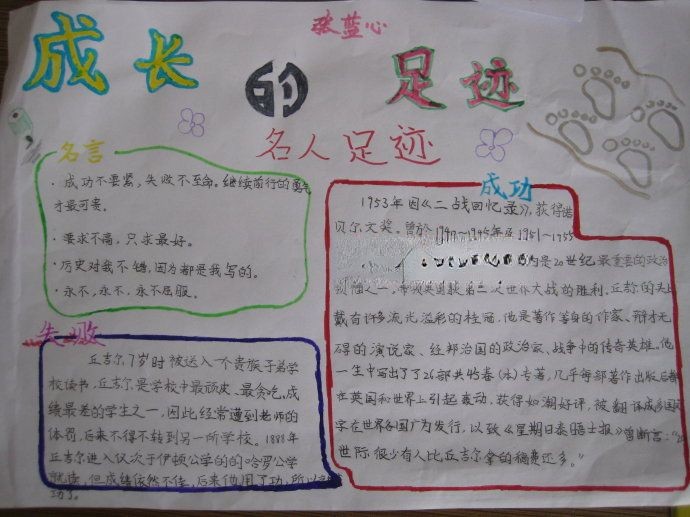 张蓝心
成长的足迹
名人足迹
名言
·成功不要紧,失败不至命。继续前行的勇气
才最可贵。
·要求不高,只求最好。
·历史对我不错,因为都是我写的。
·永不,永不,永不屈服。
失败
丘吉尔7岁时被送入一个贵族子弟学
校读书,丘吉尔是学校中最顽皮、最贪吃、成
绩最差的学生之一,因此经常遭到老师的
体罚,后来不得不转到另一所学校。1888年
丘吉尔进入仅次于伊顿公学的的哈罗公学
就读,但成绩依然不佳,后来他用了功,所以
功了。
成功
1953年因《二战回忆录》,获得诺
贝尔文奖。曾於1940~1945年及1951~1955
是20世纪最重要的政治
领袖之一,带领英国获第二次世界大战的胜利。丘吉尔的头上
戴有许多流光溢彩的桂冠,他是著作等身的作家、辩才无
碍的演说家、经邦治国的政治家、战争中的传奇英雄。他
一生中写出了了26部共45卷(本)专著,几乎每部著作出版后都
在英国和世界上引起轰动,获得如潮好评,被翻译成多国文
字在世界各国广为发行,以致《星期日泰晤士报》曾断言:"20
世际很少有人比丘吉尔拿的稿费还多。"